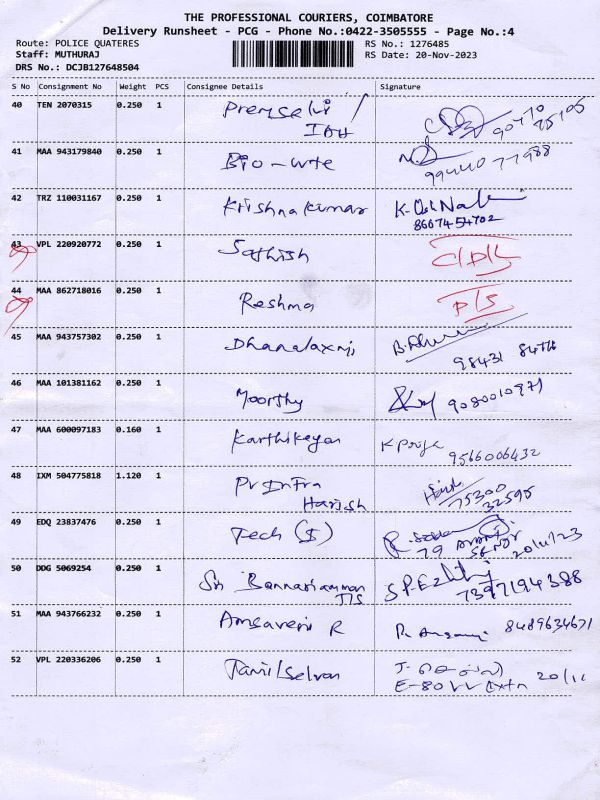 THE PROFESSIONAL COURIERS, COIMBATORE
Delivery Runsheet - PCG - Phone No.:0422-3505555 - Page No.:4
Route: POLICE QUATERES
RS No.: 1276485
Staff: MUTHURAJ
RS Date: 20-Nov-2023
DRS No.: DCJB127648504
S No Consignment No Weight PCS Consignee Details Signature
40 TEN 2070315 0.250 1 Premselvi
90470
75105
41 MAA 943179840 0.250 1 Bio-wte
99440 77988
42 TRZ 110031167 0.250 1 Krishnakumar
8667454702
43 VPL 220920772 0.250 1 Sathish
44 MAA 862718016 0.250 1 Reshma
45 MAA 943757302 0.250 1 Dhanalaxmi
98431
46 MAA 101381162 0.250 1 Moorthy 9080010971
47 MAA 600097183 0.160 1 Karthikeyan K Priya
9566006432
48 IXM 504775818 1.120 1 Pr Infra
Harish
75300
32595
49 EDQ 23837476 0.250 1 Tech ($)
79
20/11/23
50 DDG 5069254 0.250 1 Sri Bannariamman
7397194388
51 MAA 943766232 0.250 1 Amsaveni R 8489634671
52 VPL 220336206 0.250 1 Tamilselvan
E-80 20/11